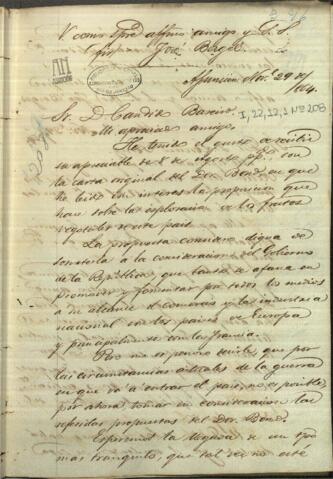 V. como Gral. affmo. amigo y S. S.
José Berges
Asuncion Nov.e 29 de
1864.
I, 22, 12, 1 Nº 203
Sr. D. Candido Bareiro.
Mi apreciado amigo.
He tenido el gusto de recibir
su apreciable de 8 de Agosto pp. con
la carta original del Dor. Bond, en que
he leido con interes la proposicion que
hace sobre la esploracion de los frutos
vegetales de este pais.
La propuesta considero digna de
someterla á la consideracion del Gobierno
de la Republica, que tanto se afana en
promover y fomentar por todos los medios
a su alcance el comercio y la industria
nacional con los paises de Europa
y principalmente con la Francia.
Pero me es penoso decirle que por
las circunstancias críticas de la guerra
en que va a entrar el pais, no es posible
por ahora tomar en consideracion las
referidas propuestas del Dor. Bond.
Esperemos la llegada de un tpo.
mas tranquilo, que tal vez no esté